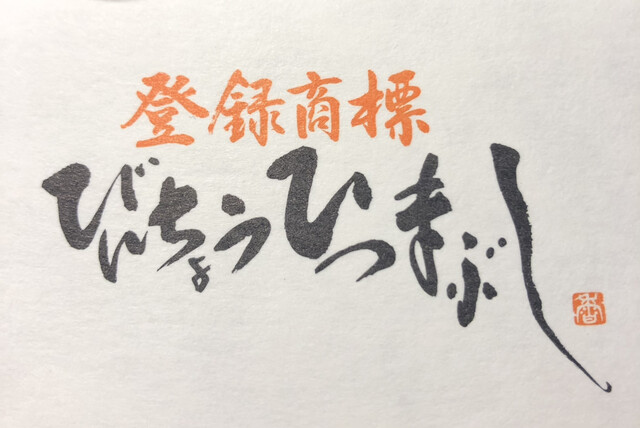 登録商標
びんちょうひつまぶし